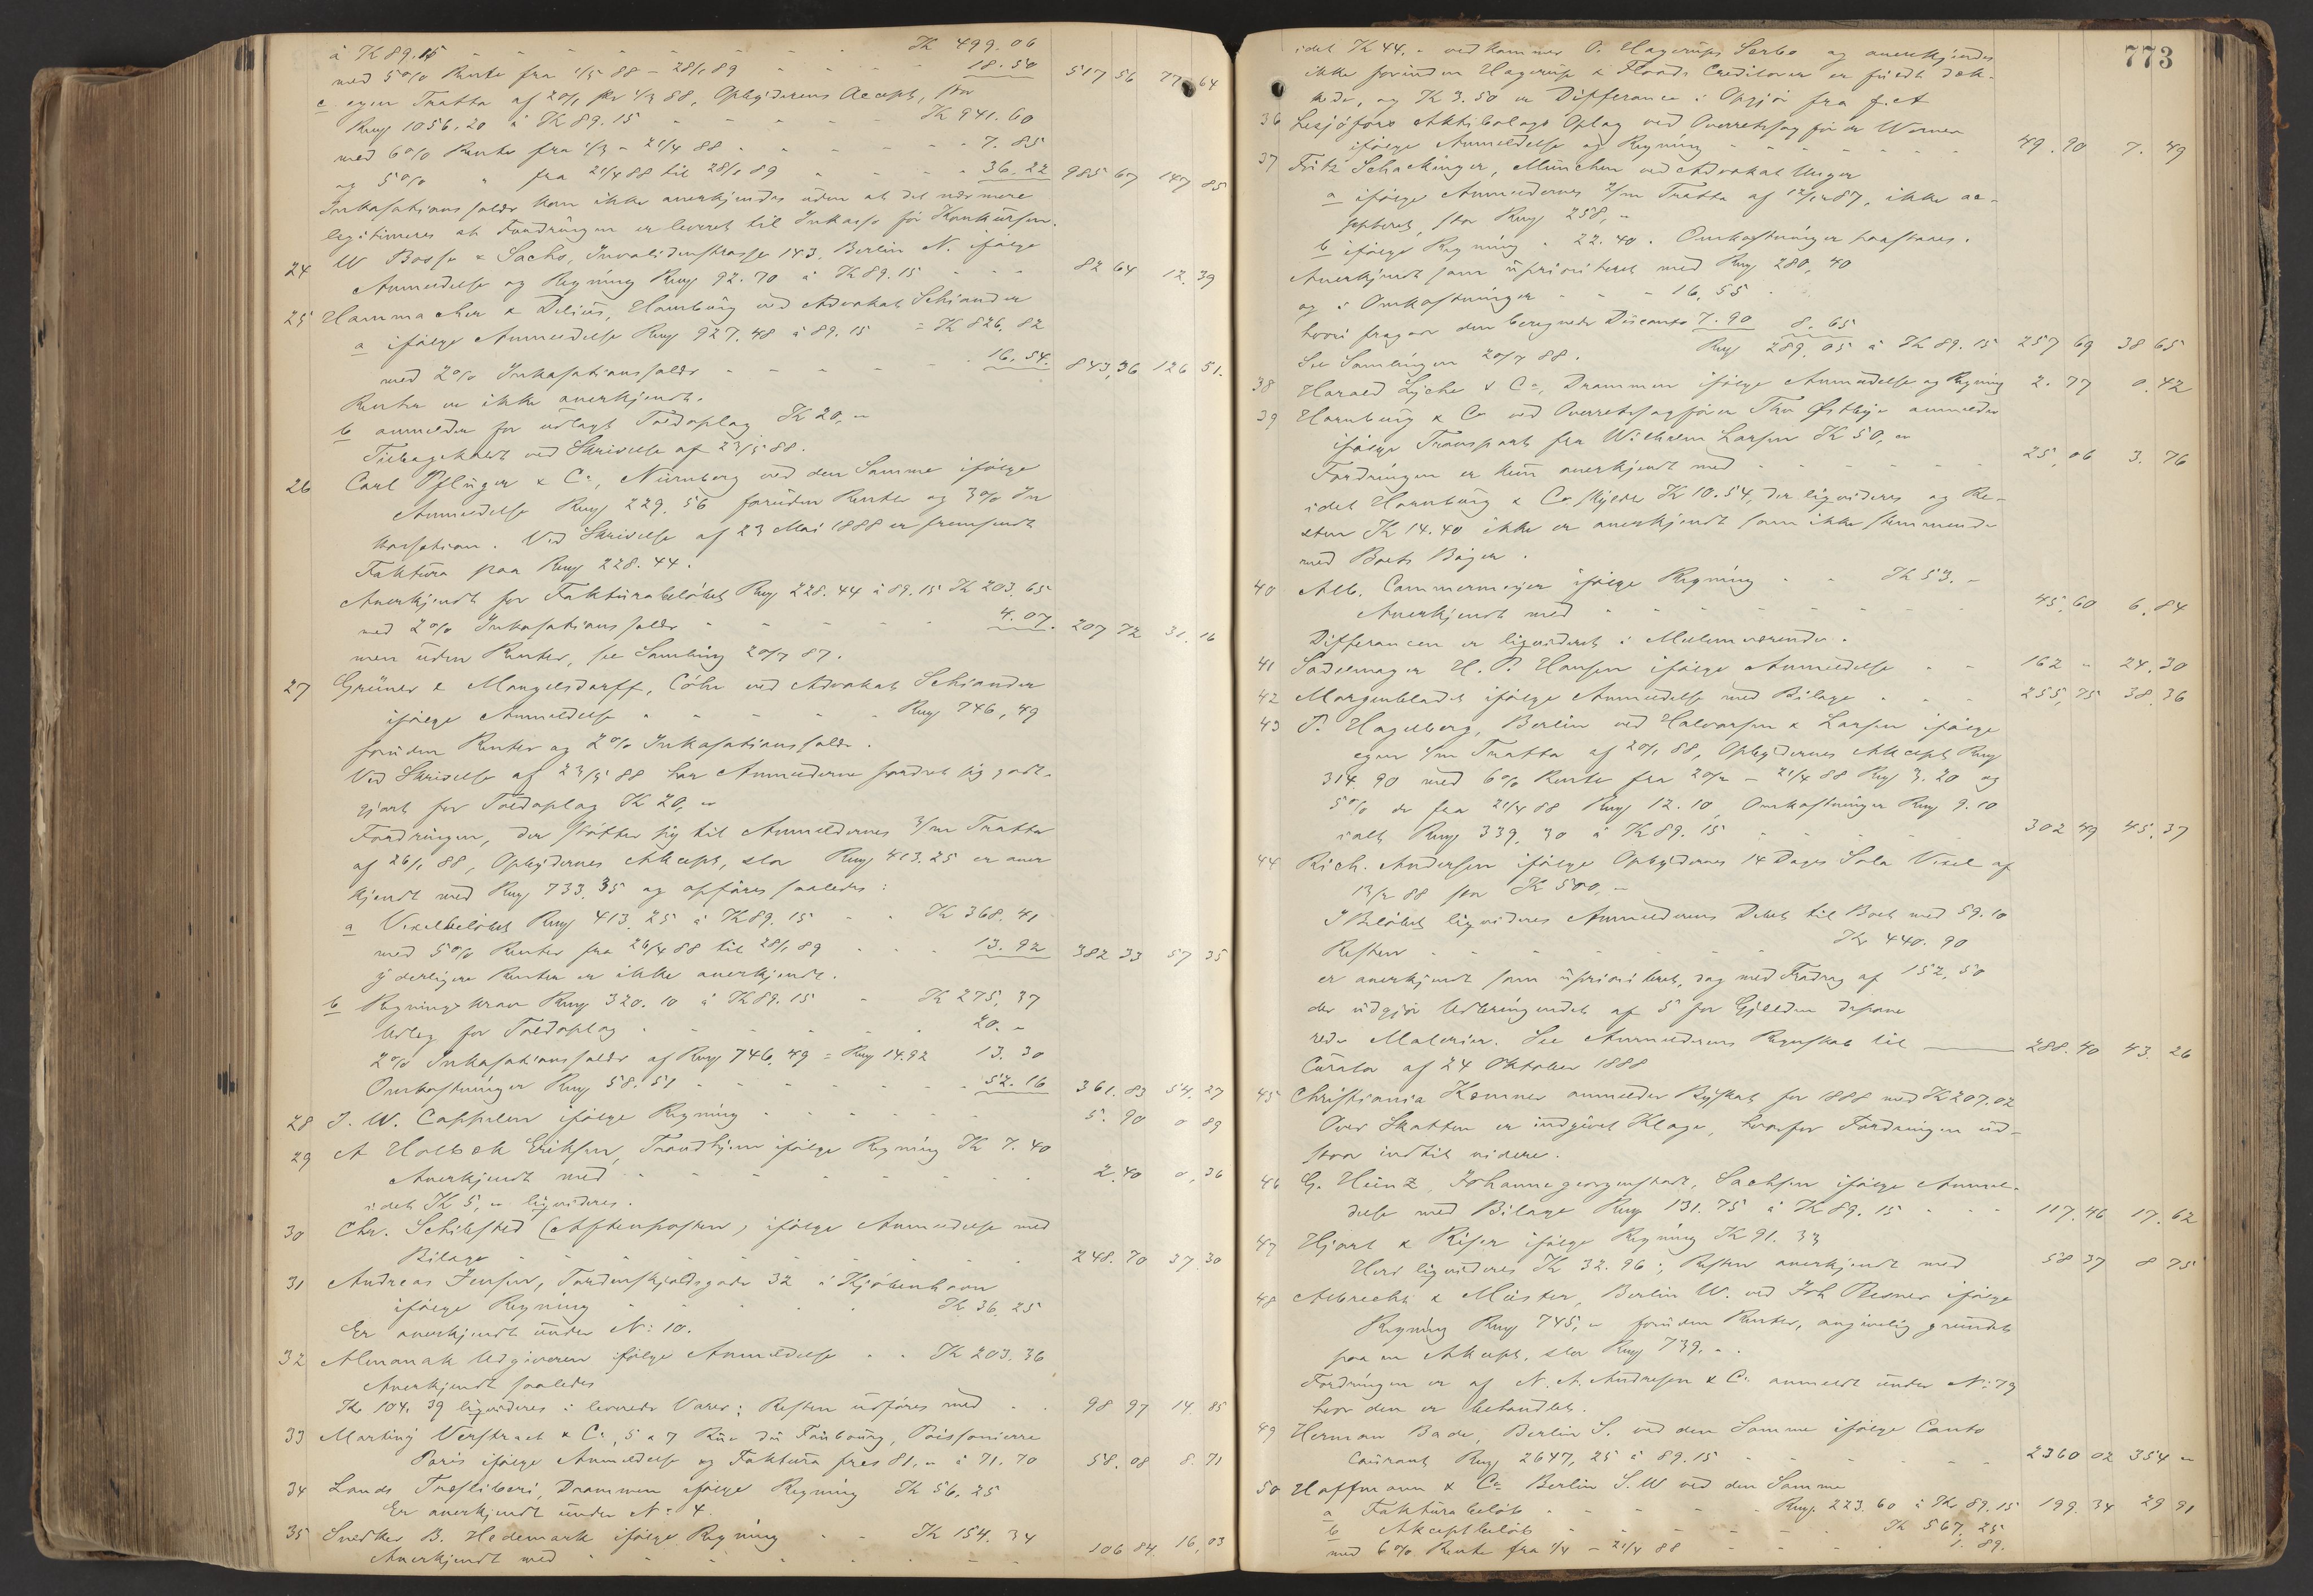 à K 89.15 - - - - - - K 499.06
med 5% Rente fra 1/5 88 - 28/1 89 - - - - 18.50 517 56 77 64
c egen Tratta af 20/1 pr 1/3 88, Opbyderens Accept, stor
Rmg 1056.20 à K 89.15 - - - - - K 941.60
med 6% Rente fra 1/3 - 21/4 88 - - - - - 7.85
og 5% " fra 21/4 88 til 28/1 89 - - - - 36.22 985 67 147 85
Inkasationssalær kan ikke anerkjendes uden at det nærmere
legitimeres at Fordringen er leveret til Inkasso før Konkursen.
24 W Bosse & Sachs, Invalidenstrasse 143, Berlin N. ifølge
Anmeldelse og Regning Rmg 92.70 à K 89.15 - - - 82 64 12.39
25 Hammacher & Delius, Hamburg ved Advokat Schiander
a ifølge Anmeldelse Rmg 927.48 à 89.15 = K 826.82
med 2% Inkasationssalær - - - - - 16.54. 843,36 126 51.
Renter er ikke anerkjendt.
b anmelder for udlagt Toldoplag K 20,"
Tilbagekaldt ved Skrivelse af 23/5 88.
26 Carl Pflüger & Co, Nürnberg ved den Samme ifølge
Anmeldelse Rmg 229.56 foruden Renter og 3% In
kassation. Ved Skrivelse af 23 Mai 1888 er fremsendt
Faktura paa Rmg 228.44.
Anerkjendt for Fakturabeløbet Rmg 228.44 à 89.15 K 203.65
med 2% Inkasationssalær - - - - - 4.07. 207 72 31.16
men uden Renter, se Samling 20/7 87.
27 Grüner & Mangelsdorff, Cöln ved Advokat Schiander
ifølge Anmeldelse - - - - - Rmg 746,49
foruden Renter og 2% Inkasationssalær.
Ved Skrivelse af 23/5 88 har Anmelderne fordret sig godt-
gjort for Toldoplag K 20,"
Fordringen, der støtter sig til Anmeldernes 3/m Tratta
af 26/1 88, Opbydernes Akcept, stor Rmg 413.25 er aner
kjendt med Rmg 733.35 og opføres saaledes:
a Vexelbeløbet Rmg 413.25 à K 89.15 - - K 368.41
med 5% Renter fra 26/4 88 til 28/1 89 - - - 13.92 382 33 57 35
yderligere Renter er ikke anerkjendt.
b Regningskrav Rmg 320.10 à K 89.15 - K 275,37
Udlæg for Toldoplag - - - - - - 20."
2% Inkasationssalær af Rmg 746,49 = Rmg 14.92 13.30
Omkostninger Rmg 58.51 - - - - - - 52.16 361.83 54.27
28 J. W. Cappelen ifølge Regning - - - - - - 5.90 0 89
29 A Holbæk Eriksen, Trondhjem ifølge Regning K 7.40
Anerkjendt med - - - - - - - - 2.40 0,36
idet K 5," ligvideres.
30 Chr. Schibsted (Aftenposten) ifølge Anmeldelse med
Bilage - - - - - - - - 248.70 37.30
31 Andreas Jensen, Tordenskjoldsgade 32 i Kjøbenhavn
ifølge Regning - - - - - K 36.25
Er anerkjendt under No: 10.
32 Almanak Udgiveren ifølge Anmeldelse - - K 203.36
Anerkjendt saaledes
K 104.39 ligvideres i leverede Varer; Resten udføres med - - 98 97 14.85
33 Martiny Verstraet & Co, 5 a 7 Rue du Faubourg, Poissonierre
Paris ifølge Anmeldelse og Faktura frcs 81," à 71.70 58.08 8.71
34 Lands Træsliberi, Drammen ifølge Regning K 56.25
Er anerkjendt under No: 4.
35 Snedker B. Hedemark ifølge Regning - - K 154.34
Anerkjendt med - - - - - - - 106 84 16,03
773
idet K 44," vedkommer O. Hagerups Særbo og anerkjendes
ikke forinden Hagerup & Floods Creditorer er fuldt dæk-
kede, og K 3.50 er Difference i Opgjør fra f. A
36 Lesjöfors Aktibolags Oplag ved Overretssagfører Worner
ifølge Anmeldelse og Regning - - - - - - 49.90 7.49
37 Fritz Schachinger, München ved Advokat Unger
a ifølge Anmeldernes 2/m Tratta af 12/12 87, ikke ac-
septeret, stor Rmg 258,"
b ifølge Regning " 22.40. Omkostninger paastaaes.
Anerkjendt som uprioriteret med Rmg 280,40
og i Omkostninger - - - 16,55
hvori fragaar den beregnede Disconto 7.90 8.65
See Samlingen 20/7 88. Rmg 289.05 à K 89.15 257 69 38 65
38 Harald Lyche & Co, Drammen ifølge Anmeldelse og Regning 2.77 0.42
39 Hornburg & Co ved Overretssagfører Thv Østbye anmelder
ifølge Transport fra Wilhelm Larsen K 50,"
Fordringen er kun anerkjendt med - - - - - 25,06 3.76
idet Hornburg & Co skylder K 10.54, der ligvideres og Re-
sten K 14.40 ikke er anerkjendt som ikke stemmende
med Boets Bøger.
40 Alb. Cammermeyer ifølge Regning - - K 53."
Anerkjendt med - - - - - - - - 45,60 6.84
Differencen er ligvideret i Mellemværende.
41 Sadelmager H. P. Hansen ifølge Anmeldelse - - 162 " 24.30
42 Morgenbladet ifølge Anmeldelse med Bilage - - - 255,75 38.36
43 P. Hagelberg, Berlin ved Halvorsen & Larsen ifølge
egen 1/m Tratta af 20/1 88, Opbydernes Akcept Rmg
314.90 med 6% Rente fra 20/2 - 21/4 88 Rmg 3.20 og
5% do fra 21/4 88 Rmg 12.10, Omkostninger Rmg 9.10
ialt Rmg 339,30 à K 89.15 - - - - 302 49 45.37
44 Rich. Andersen ifølge Opbydernes 14 Dages Sola Vexel af
13/2 88 stor K 500,"
I Beløbet ligvideres Anmelderens Debet til Boet med 59.10
Resten - - - - - - - K 440.90
er anerkjendt som uprioriteret, dog med Fradrag af 152,50
der udgjør Udbringendet af 5 for Gjælden depone
rede Malerier. See Anmelderens Regnskab til — 288.40 43.26
Curator af 24 Oktober 1888
45 Christiania Kemner anmelder Byskat for 1888 med K 207.02
Over Skatten er indgivet Klage, hvorfor Fordringen ud-
staar indtil videre.
46 G. Heinz, Johanngeorgenstadt, Sachsen ifølge Anmel-
delse med Bilage Rmg 131.75 à K 89.15 - - - 117.46 17.62
47 Hjort & Riser ifølge Regning K 91.33
Heri ligvideres K 32.96; Resten anerkjendt med 58 37 8 75
48 Albrecht & Müster, Berlin W. ved Joh Presner ifølge
Regning Rmg 745," foruden Renter, angivelig grundet
paa en Akcept, stor Rmg 739.".
Fordringen er af N. A. Andresen & Co. anmeldt under No: 79
hvor den er behandlet.
49 Herman Bade, Berlin S. ved den Samme ifølge Conto
Courant Rmg 2647,25 à 89.15 - - - - - - 2360 02 354 "
50 Hoffmann & Co Berlin S.W ved den Samme
a Fakturabeløb - - - - - Rmg. 223.60 à K 89.15 199.34 29 91
b Akceptbeløb - - - - - - K 567,25
med 6% Rente fra 1/4 - 21/4 88 - - - - 1.89.